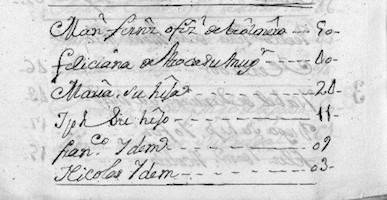 Manl. fernz. ofizl. de 50-
feliciana de Roca su mugr. 00-
Maria su hija 20-
Jph Su hijo 11-
franco. Ydem 09
Nicolas Ydem 03-